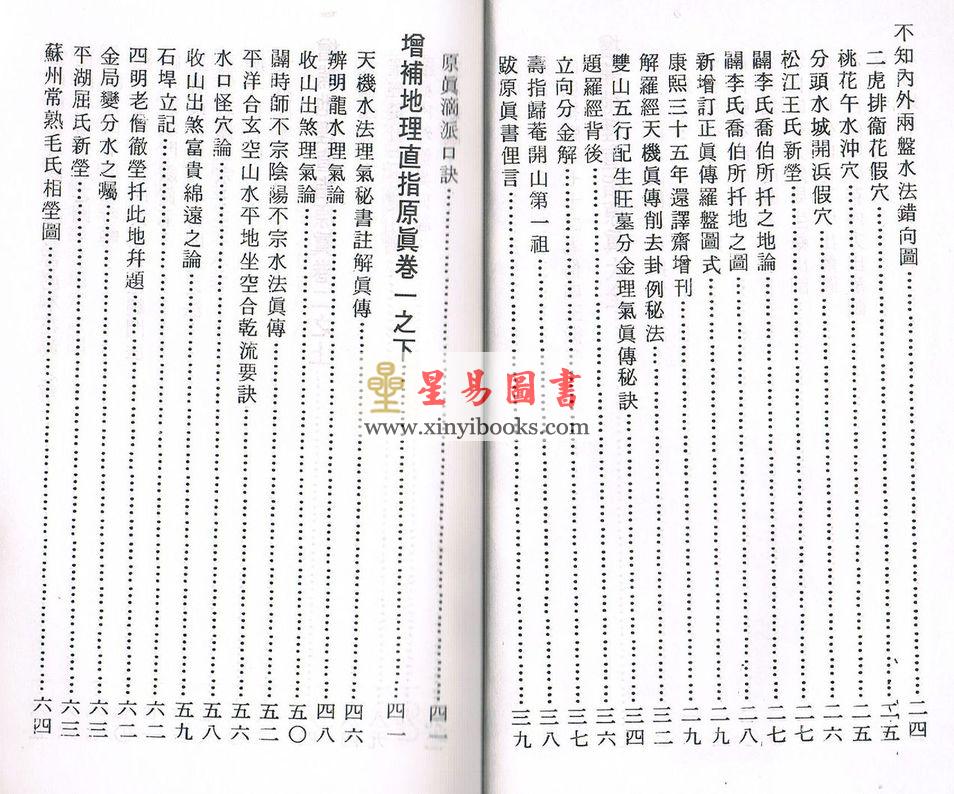 不知內外兩盤水法錯向圖……二四
二虎排衙花假穴……二五
桃花午水沖穴……二五
分頭水城開浜假穴……二六
松江王氏新塋……二七
闢李氏喬伯所扦之地論……二七
闢李氏喬伯所扦地之圖……二八
新增訂正眞傳羅盤圖式……二九
康熙三十五年還譯齋增刊……二九
解羅經天機眞傳削去卦例秘法……三二
雙山五行配生旺墓分金理氣眞傳秘訣……三四
題羅經背後……三六
立向分金解……三七
壽指歸菴開山第一祖……三八
跋原眞書俚言……三九
原眞滴派口訣……四一
增補地理直指原眞卷一之下……四一
天機水法理氣秘書註解眞傳……四六
辨明龍水理氣論……四八
收山出煞理氣論……五〇
闢時師不宗陰陽不宗水法眞傳……五二
平洋合玄空山水平地坐空合乾流要訣……五六
水口怪穴論……五八
收山出煞富貴綿遠之論……五九
石垾立記……六二
四明老僧徹塋扦此地幷題……六二
金局變分水之囑……六三
平湖屈氏新塋……六三
蘇州常熟毛氏相塋圖……六四
星易圖書
www.xinyibooks.com